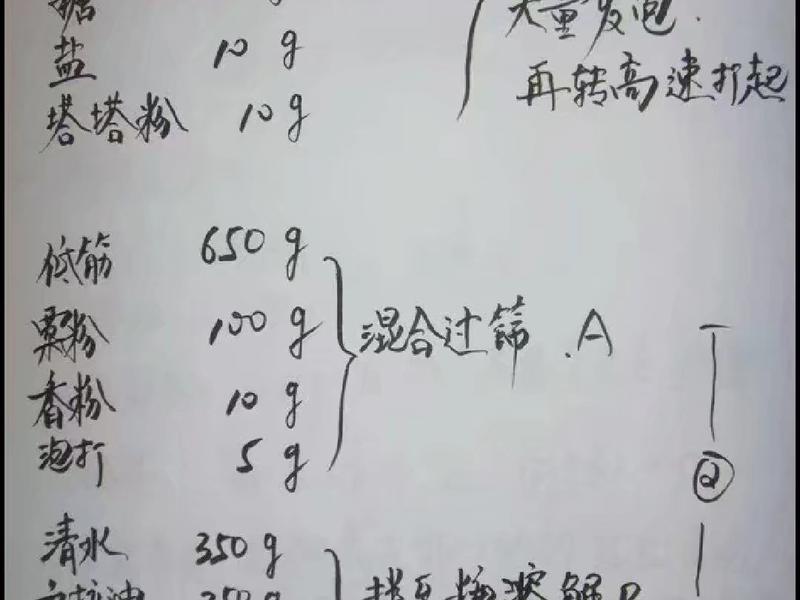 糖 g
盐 10 g
塔塔粉 10 g
大量发泡.
再转高速打起
低筋 650 g
粟粉 100 g
香粉 10 g
泡打 5 g
混合过筛.A
②
清水 350 g
油 350 g
溶解B